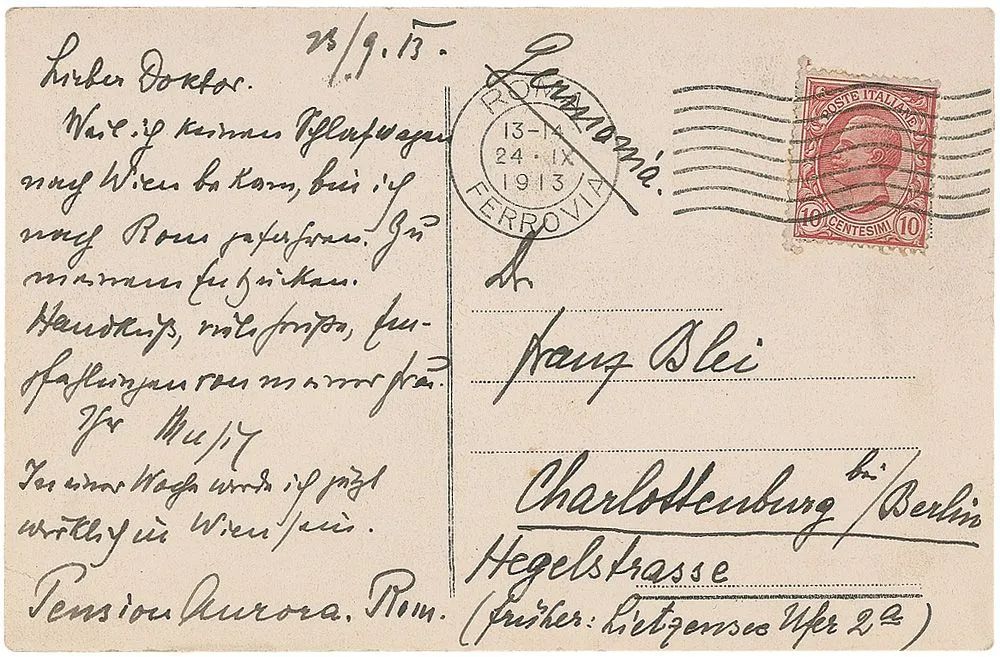 23/9. 13.
Lieber Doktor.
Weil ich keinen Schlafwagen
nach Wien bekam, bin ich
nach Rom gefahren. Zu
meinem Entzücken.
Handkuß, viele Grüße, Em-
pfehlungen von meiner Frau.
Ihr Musil
In einer Woche werde ich jetzt
wirklich in Wien sein.
Pension Aurora. Rom.
Germania.
ROMA
13-14
24 · IX
1913
FERROVIA
POSTE ITALIANE
10 CENTESIMI 10
Dr
Franz Blei
Charlottenburg bei/Berlin
Hegelstrasse
(früher: Lietzensee Ufer 2a)